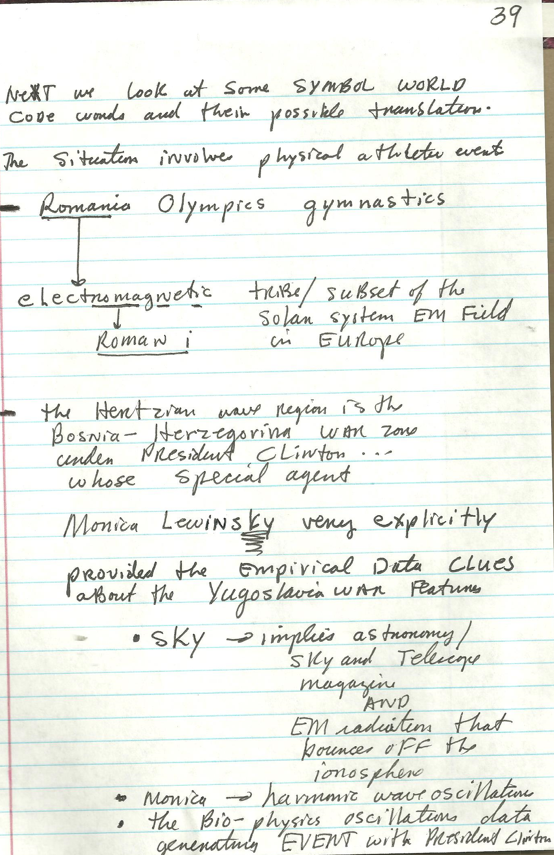 39
NeXT we look at some SYMBOL WORLD
CODE words and their possible translation.
The situation involves physical athlete event
- Romania Olympics gymnastics
electromagnetic tribe/ subset of the
Solar system EM Field
in Europe
Roman i
- the Hertzian wave region is the
Bosnia-Herzegovina WAR zone
under President Clinton ...
whose special agent
Monica Lewinsky very explicitly
provided the Empirical Data CLUES
about the Yugoslavia WAR Features
• SKY → implies astronomy/
Sky and Telescope
magazine
AND
EM radiation that
bounces off the
ionosphere
• Monica → harmonic wave oscillations
• the Bio-physics oscillations data
generating EVENT with President Clinton